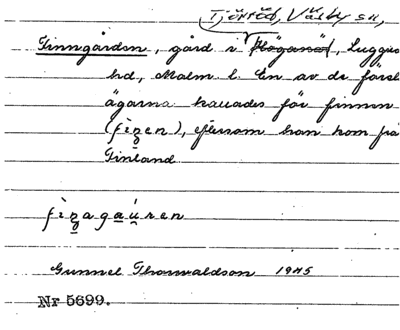 Tjörröd, Väsby sn,
Finngården, gård i Höganäs, Luggude
hd, Malm. l. En av de först
ägarna kallades för finnen
(fìŋen), eftersom han kom frå
Finland
fìŋagáuren
Gunnel Thorwaldson 1945
Nr 5699.